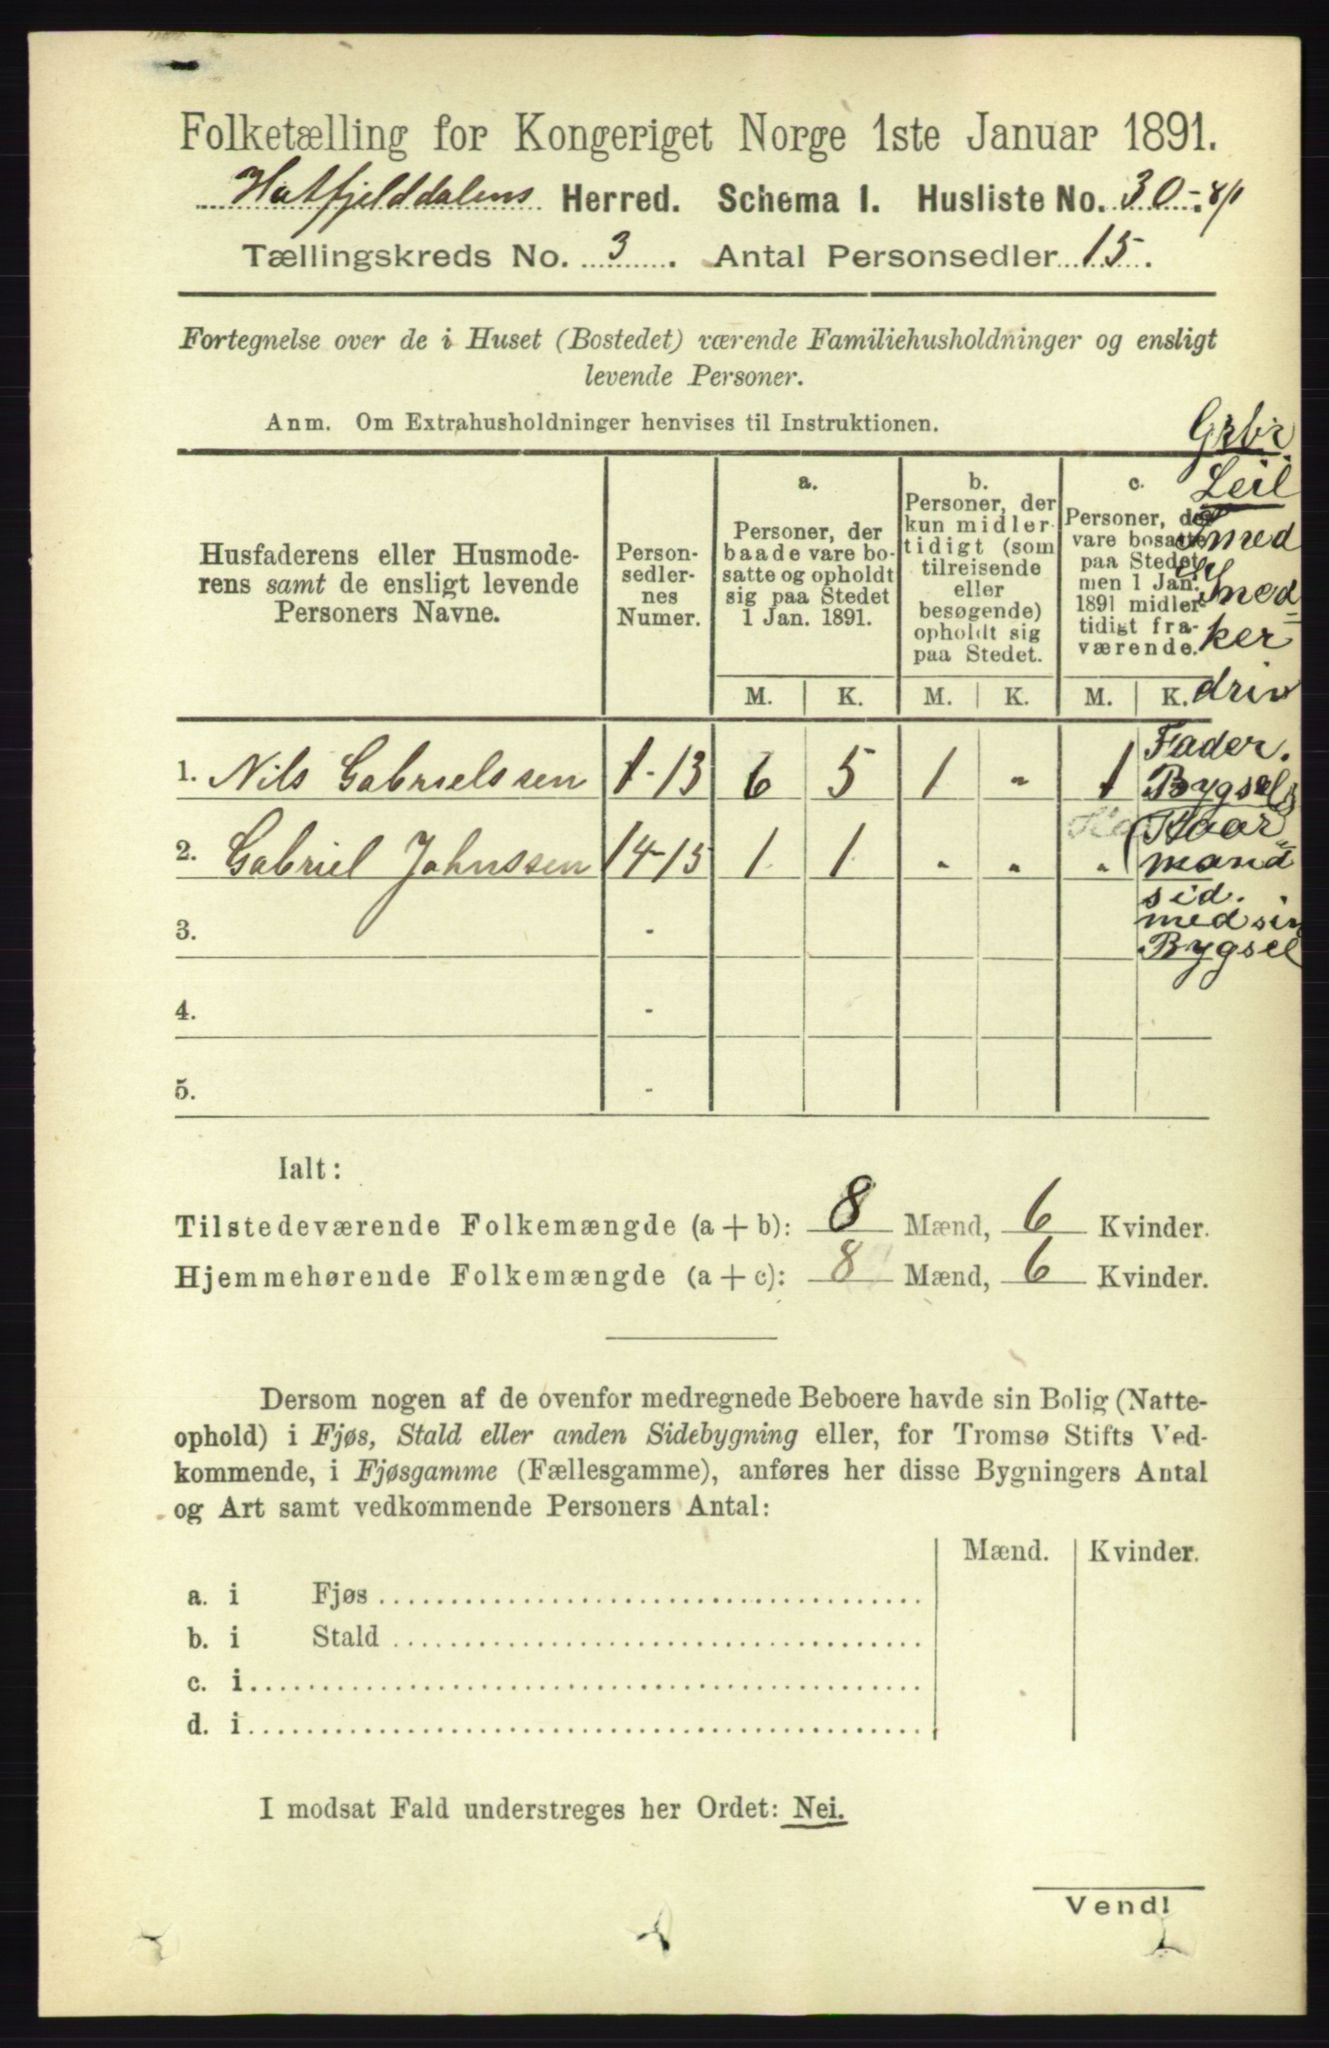 Folketælling for Kongeriget Norge 1ste Januar 1891.
Hatfjelddalens Herred. Schema 1. Husliste No. 30
Tællingskreds No. 3. Antal Personsedler 15.
Fortegnelse over de i Huset (Bostedet) værende Familiehusholdninger og ensligt
levende Personer.
Anm. Om Extrahusholdninger henvises til Instruktionen.
Husfaderens eller Husmode-
rens samt de ensligt levende
Personers Navne.
Person-
sedler-
nes
Numer.
a.
Personer, der
baade vare bo-
satte og opholdt
sig paa Stedet
1 Jan. 1891.
b.
Personer, der
kun midler-
tidigt (som
tilreisende
eller
besøgende)
opholdt sig
paa Stedet.
c.
Personer, der
vare bosatte
paa Stedet,
men 1 Jan.
1891 midler-
tidigt fra-
værende.
M. K. M. K. M. K.
Grbr.
Leil
Smed
Smed=
ker
driv
Fader.
Bygsel
Kaar=
mand
sid.
med sin
Bygsel
1. Nils Gabrielssen 1-13 6 5 1 - 1
2. Gabriel Johnssen 14-15 1 1 - - -
3. -
4. -
5. -
Ialt:
Tilstedeværende Folkemængde (a + b): 8 Mænd, 6 Kvinder.
Hjemmehørende Folkemængde (a + c): 8 Mænd, 6 Kvinder.
Dersom nogen af de ovenfor medregnede Beboere havde sin Bolig (Natte-
ophold) i Fjøs, Stald eller anden Sidebygning eller, for Tromsø Stifts Ved-
kommende, i Fjøsgamme (Fællesgamme), anføres her disse Bygningers Antal
og Art samt vedkommende Personers Antal:
Mænd. Kvinder.
a. i Fjøs
b. i Stald
c. i
d. i
I modsat Fald understreges her Ordet: Nei.
Vend!